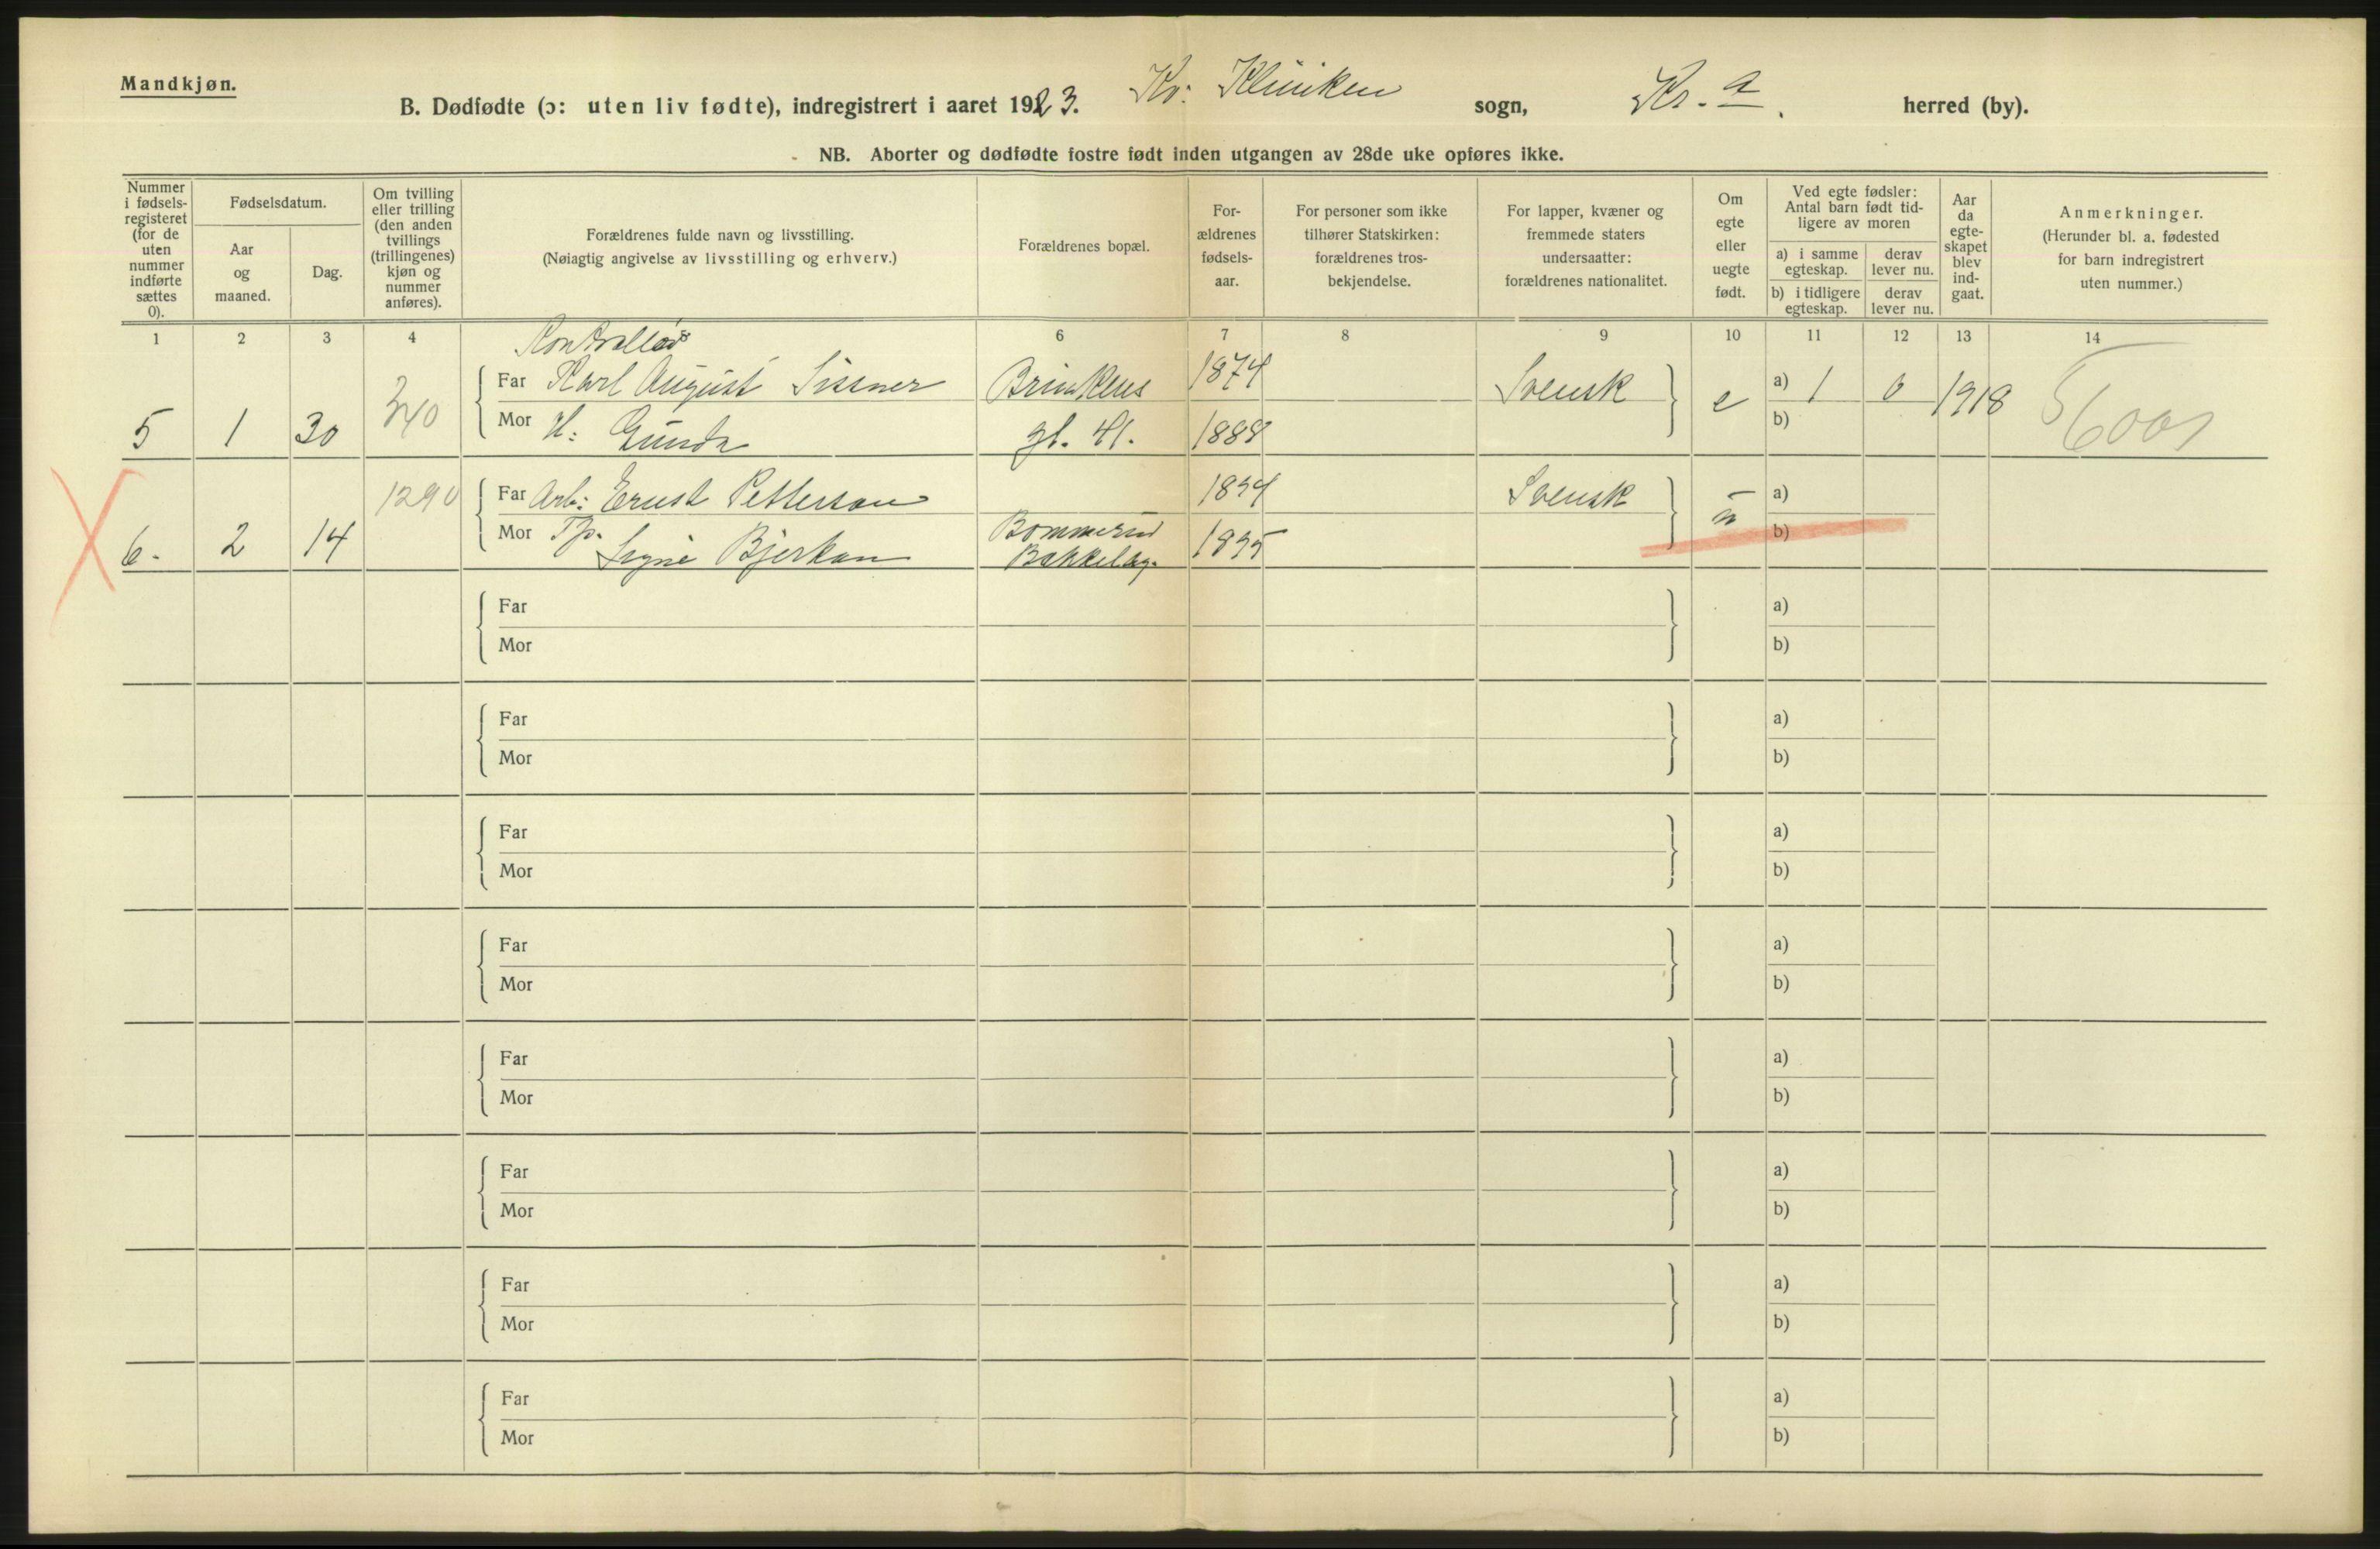 Mandkjøn.
B. Dødfødte (ɔ: uten liv fødte), indregistrert i aaret 1923. Kv: Kliniken sogn, Kr.a. herred (by).
NB. Aborter og dødfødte fostre født inden utgangen av 28de uke opføres ikke.
Nummer i fødselsregisteret (for de uten nummer indførte sættes 0).
Fødselsdatum.
Aar og maaned.
Dag.
Om tvilling eller trilling (den anden tvillings (trillingenes) kjøn og nummer anføres).
Forældrenes fulde navn og livsstilling.
(Nøiagtig angivelse av livsstilling og erhverv.)
Forældrenes bopæl.
Forældrenes fødselsaar.
For personer som ikke tilhører Statskirken: forældrenes trosbekjendelse.
For lapper, kvæner og fremmede staters undersaatter: forældrenes nationalitet.
Om egte eller uegte født.
Ved egte fødsler: Antal barn født tidligere av moren
a) i samme egteskap. derav lever nu.
b) i tidligere egteskap. derav lever nu.
Aar da egteskapet blev indgaat.
Anmerkninger.
(Herunder bl. a. fødested for barn indregistrert uten nummer.)
1 2 3 4 6 7 8 9 10 11 12 13 14
Kontrollør
5 1 30 340 Far Karl August Sissner Brinkens 1874 Svensk e a) 1 0 1918
Mor H: Gunda gt. 41. 1888 b)
6. 2 14 1290 Far Arb: Ernst Petterson 1894 Svensk u a)
Mor Tp. Signe Bjerkan Bommerud Bækkelag. 1895 b)
Far a)
Mor b)
Far a)
Mor b)
Far a)
Mor b)
Far a)
Mor b)
Far a)
Mor b)
Far a)
Mor b)
Far a)
Mor b)
Far a)
Mor b)